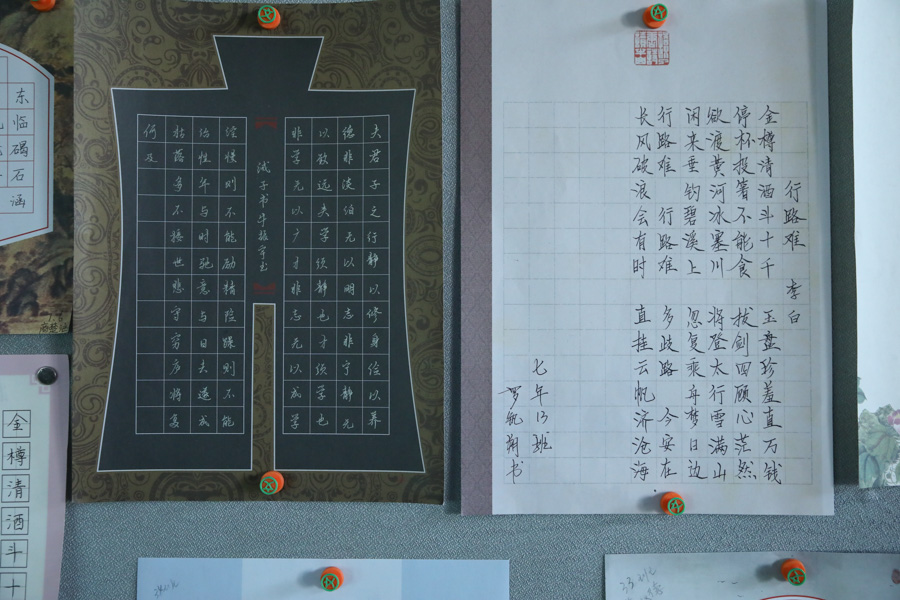 东临碣石
涵
金樽清酒斗十
夫君子之行静以修身俭以养
德非淡泊无以明志非宁静无
以致远夫学须静也才须学也
非学无以广才非志无以成学
诫子书
淫慢则不能励精险躁则不能
治性年与时驰意与日去遂成
枯落多不接世悲守穷庐将复
何及
行路难 李白
金樽清酒斗十千 玉盘珍羞直万钱
停杯投箸不能食 拔剑四顾心茫然
欲渡黄河冰塞川 将登太行雪满山
闲来垂钓碧溪上 忽复乘舟梦日边
行路难 行路难 多歧路 今安在
长风破浪会有时 直挂云帆济沧海
七年13班
罗航翔书